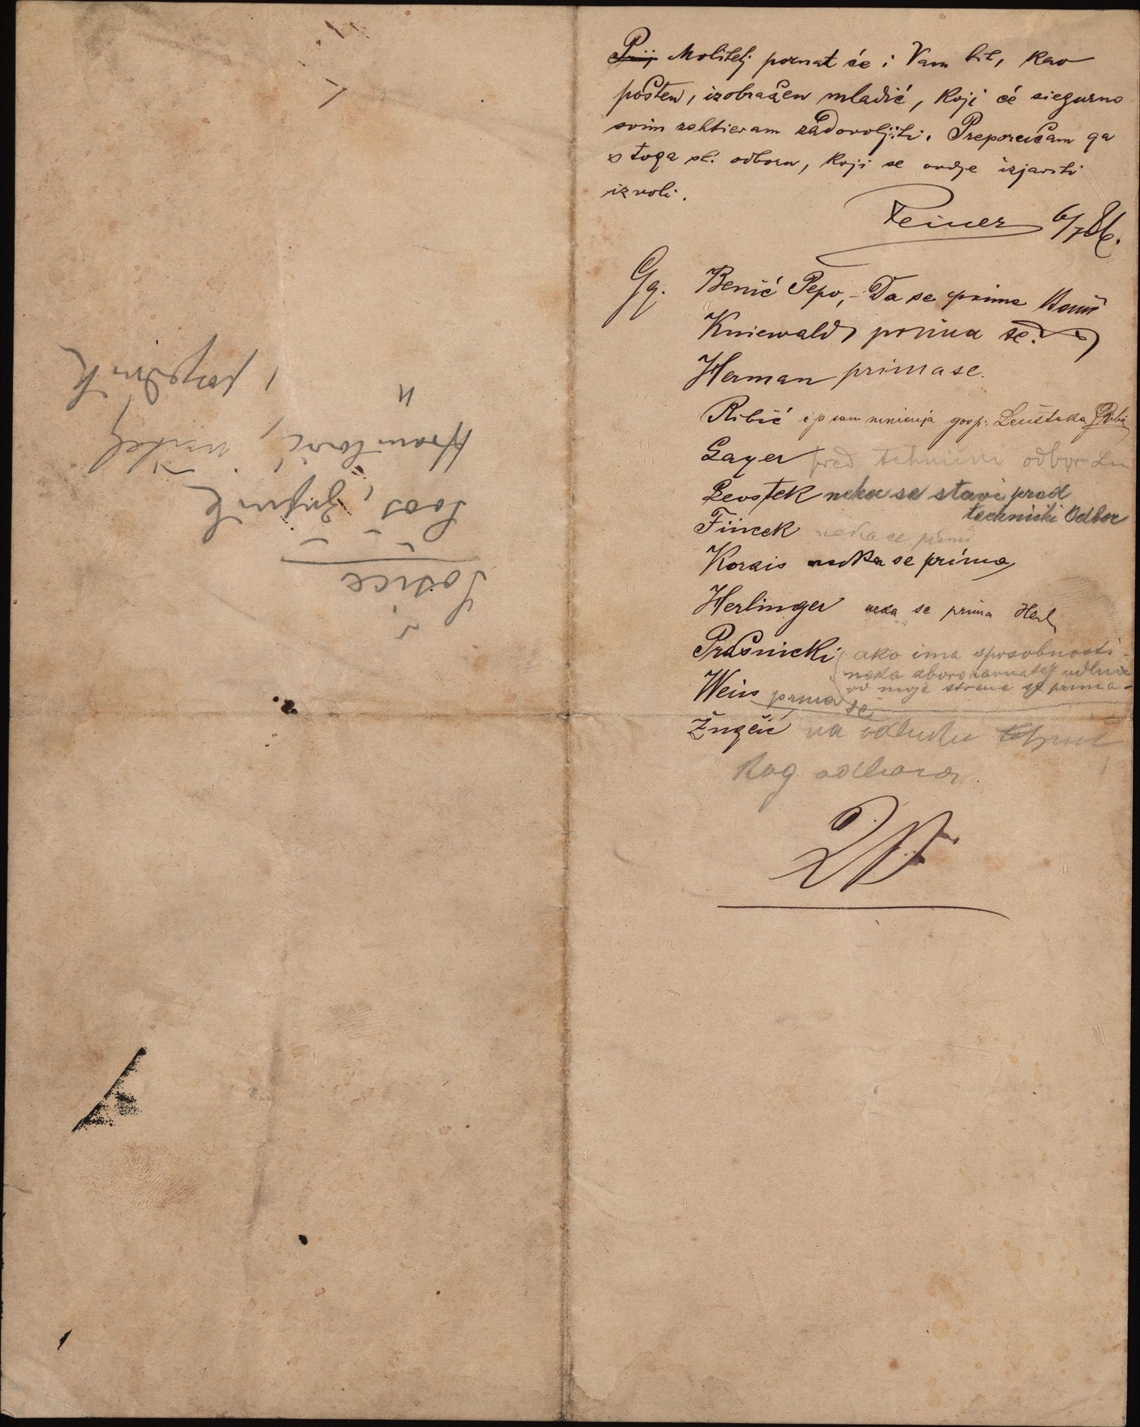 Molitelj poznat će i Vam bit, kao
pošten, izobražen mladić, koji će siegurno
svim zahtievam zadovoljiti. Preporučam ga
s toga sl. odboru, koji se ovdje izjaviti
izvoli.
6/7 86.
Gg. Benić Pepo, – Da se prima Benić
Kniewald prima se.
Herman prima se.
Ribić i ja sam mnienja gosp. Leušteka Ribić
Layer pred tehnični odbor
Levstek neka se stavi pred
technički Odbor
Fincek neka se primi
Korais neka se prima
Herlinger neka se prima Herl
Prašnicki ako ima sposobnosti
neka zborovavnatelj odluči
od moje strane se prima
Weiss prima se
Žugčić na odluku
kog odbora.
Soos,
Hramilović, učitelj
" , pazprnik